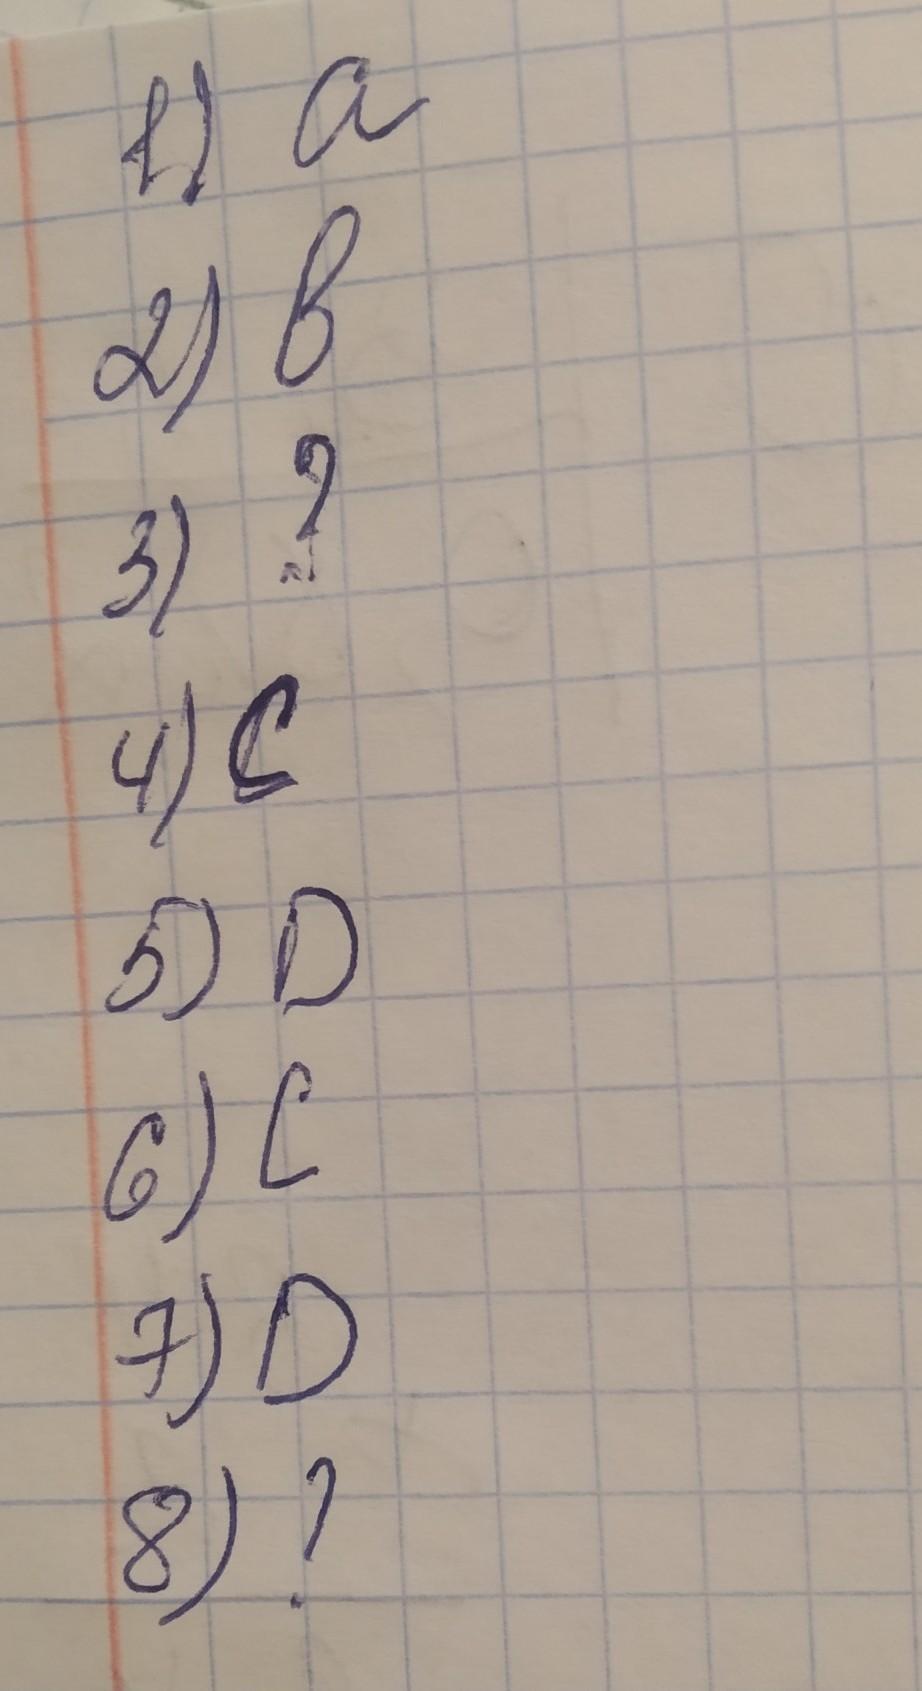 1) a
2) b
3) ?
4) C
5) D
6) C
7) D
8) ?